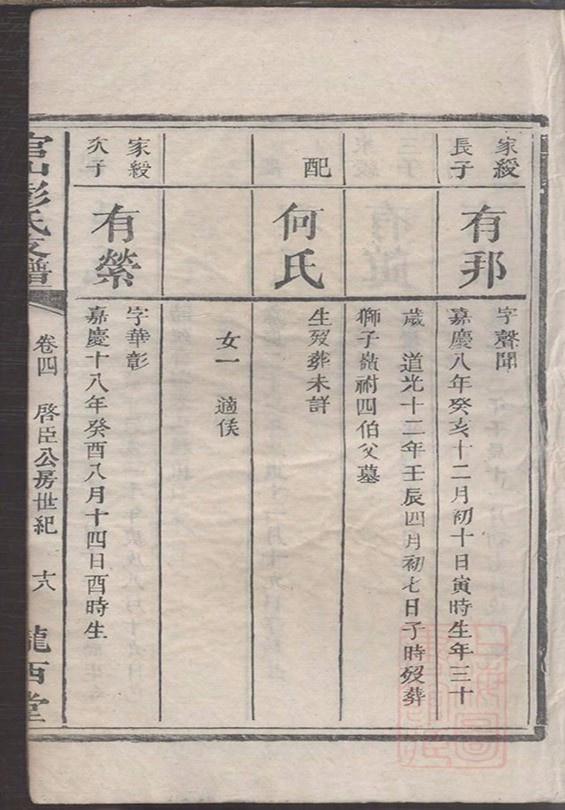 家綬
長子
有邦
字聲聞
嘉慶八年癸亥十二月初十日寅時生年三十
歲 道光十二年壬辰四月初七日子時歿葬
獅子巖祔四伯父墓
配
何氏
生歿葬未詳
女一 適侯
家綬
次子
有縈
字華彰
嘉慶十八年癸酉八月十四日酉時生
彭氏支譜
卷四 啓臣公房世紀 十八
隴西堂